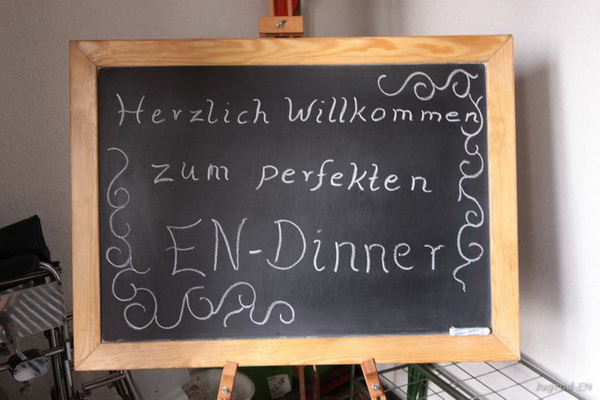 Herzlich Willkommen
zum perfekten
EN-Dinner
Jugend-EN